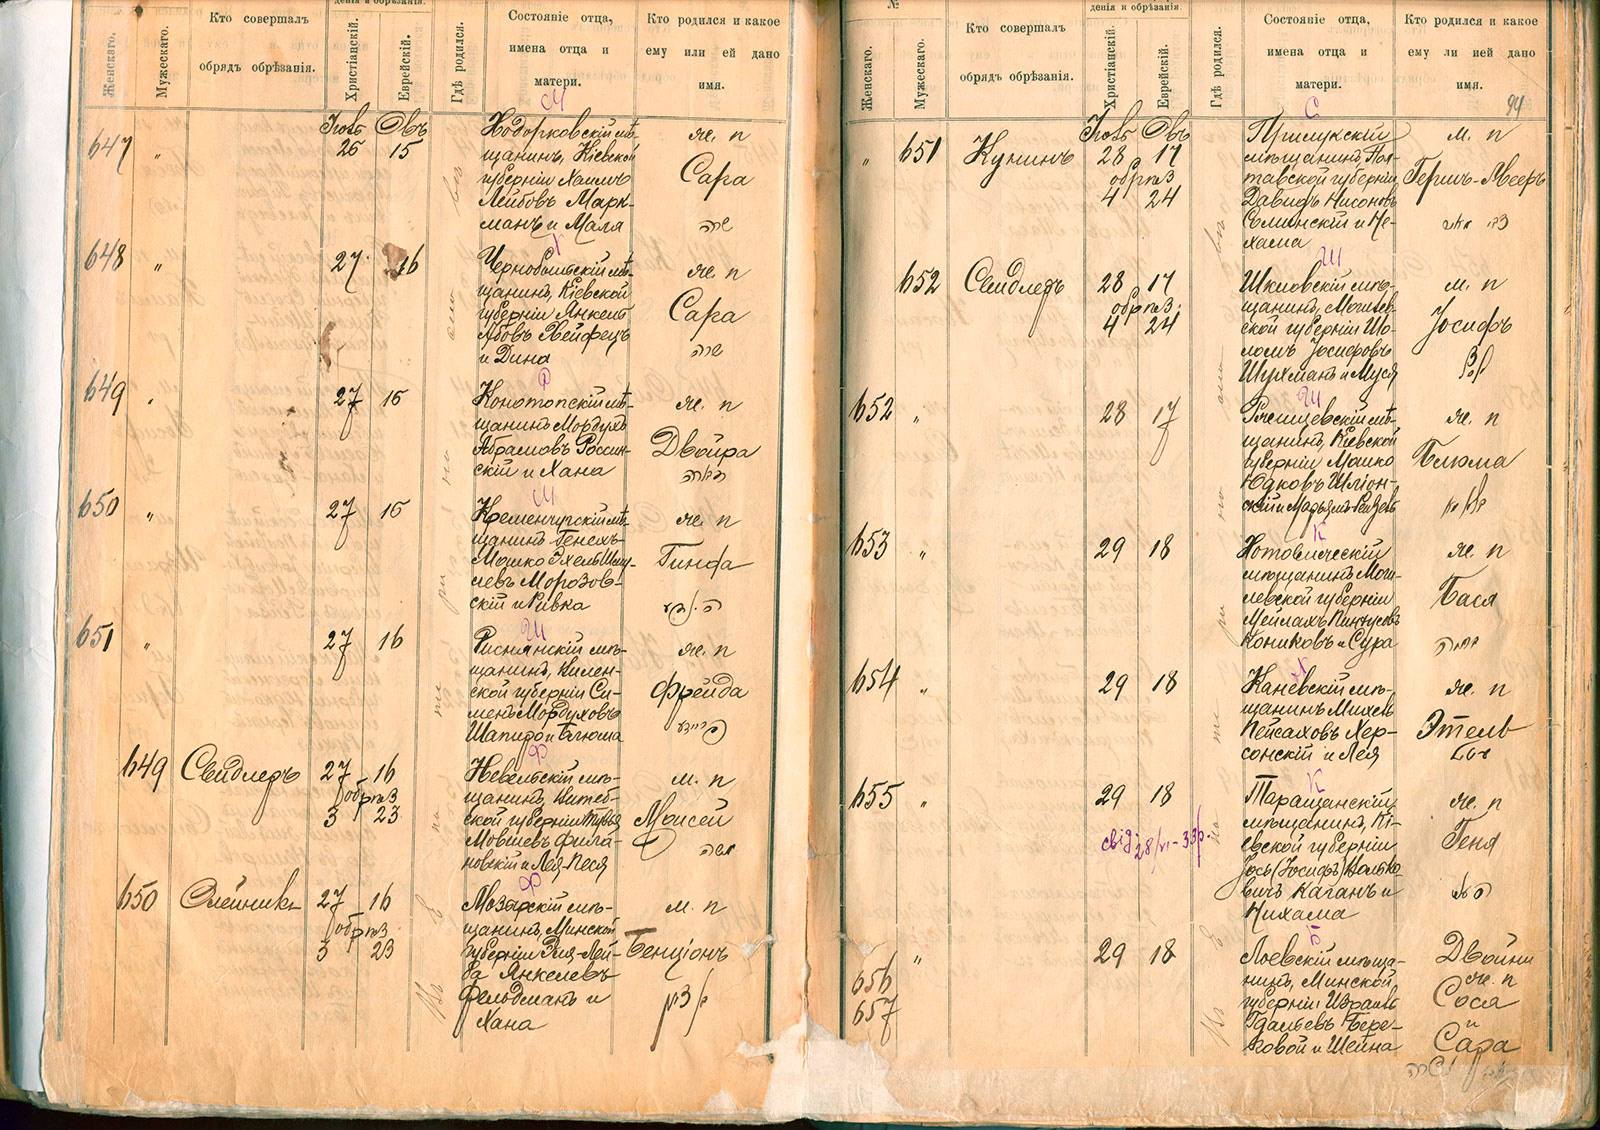 Женскаго.
Мужескаго.
Кто совершалъ
обрядъ обрѣзанія.
денія и обрѣзанія.
Христіанскій.
Еврейскій.
Гдѣ родился.
Состояніе отца,
имена отца и
матери.
Кто родился и какое
ему или ей дано
имя.
647 "
26 15
Ходорковскій мѣ-
щанинъ, Кіевской
губерніи Хаимъ
Лейбовъ Марк-
манъ и Маля
же. п
Сара
שרה
648 "
27 16
Чернобыльскій мѣ-
щанинъ, Кіевской
губерніи Янкель
Абовъ Хейфецъ
и Дина
же. п
Сара
שרה
649 "
27 16
Конотопскій мѣ-
щанинъ Мордухъ
Абрамовъ Россин-
скій и Хана
же. п
Двойра
650 "
27 16
Кременчугскій мѣ-
щанинъ Генехъ-
левъ Морозов-
скій и Ривка
же. п
Гинда
651 "
27 16
щанинъ, Вилен-
ской губерніи Си-
менъ Мордуховъ
Шапиро и Блюма
же. п
Фрейда
649 Свидлеръ
27 16
обрѣз
3 23
Невельскій мѣ-
щанинъ, Витеб-
ской губерніи
Мовшевъ Фила-
новскій и Лея-Песя
м. п
Моисей
משה
650 Олейникъ
27 16
обрѣз
3 23
Мозырскій мѣ-
щанинъ, Минской
губерніи Эля-Лей-
ба Янкелевъ
Фельдманъ и
Хана
м. п
Бенціонъ
№
Женскаго.
Мужескаго.
Кто совершалъ
обрядъ обрѣзанія.
денія и обрѣзанія.
Христіанскій.
Еврейскій.
Гдѣ родился.
Состояніе отца,
имена отца и
матери.
Кто родился и какое
ему ли ией дано
имя.
94
" 651 Кунинъ
28 17
обрѣз
4 24
Прилукскій
мѣщанинъ, Пол-
тавской губерніи
Давидъ Нисоновъ
и Не-
хама
м. п
Гершъ-
652 Свидлеръ
28 17
обрѣз
4 24
Шкловскій мѣ-
щанинъ, Могилев-
ской губерніи Шо-
ломъ Іосифовъ
Шухманъ и Муся
м. п
Іосифъ
652 "
28 17
Ржищевскій мѣ-
щанинъ, Кіевской
губерніи Мошко
Юдковъ Шпіон-
же. п
Блюма
653 "
29 18
Хотовическій
мѣщанинъ Моги-
левской губерніи
Мейлахъ Пинхусовъ
Кониковъ и Сура
же. п
Бася
654 "
29 18
Каневскій мѣ-
щанинъ Михель
Пейсаховъ Хер-
сонскій и Лея
же. п
Этель
655 "
29 18
Таращанскій
мѣщанинъ, Кі-
евской губерніи
Іось (Іосифъ) Волько-
вичъ Каганъ и
Нихама
же. п
Геня
656
657
"
29 18
Лоевскій мѣща-
нинъ, Минской
губерніи Израиль
Гдальевъ Бере-
говой и Шейна
Двойни
же. п
Сося
и
Сара